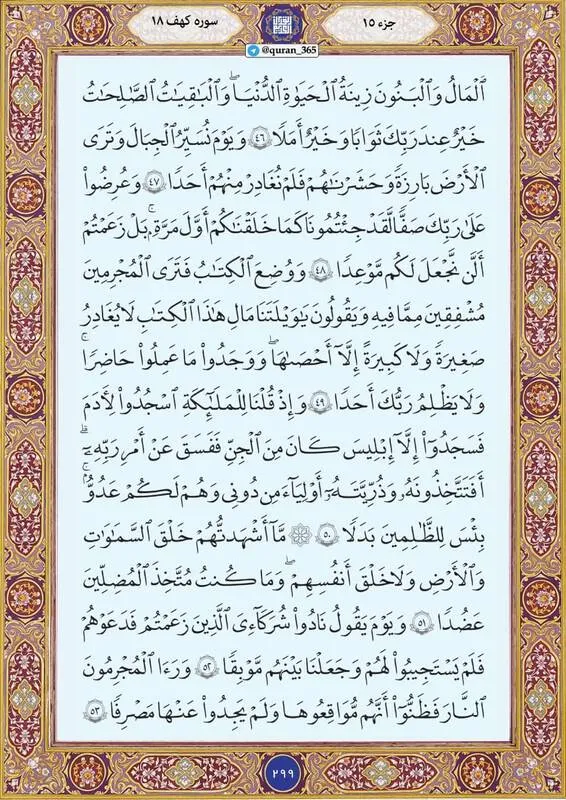 جزء ۱۵
سوره کهف ۱۸
@quran_365
ٱلْمَالُ وَٱلْبَنُونَ زِينَةُ ٱلْحَيَوٰةِ ٱلدُّنْيَا ۖ وَٱلْبَٰقِيَٰتُ ٱلصَّٰلِحَٰتُ
خَيْرٌ عِندَ رَبِّكَ ثَوَابًا وَخَيْرٌ أَمَلًا ۝٤٦ وَيَوْمَ نُسَيِّرُ ٱلْجِبَالَ وَتَرَى
ٱلْأَرْضَ بَارِزَةً وَحَشَرْنَٰهُمْ فَلَمْ نُغَادِرْ مِنْهُمْ أَحَدًا ۝٤٧ وَعُرِضُوا۟
عَلَىٰ رَبِّكَ صَفًّا لَّقَدْ جِئْتُمُونَا كَمَا خَلَقْنَٰكُمْ أَوَّلَ مَرَّةٍۭ ۚ بَلْ زَعَمْتُمْ
أَلَّن نَّجْعَلَ لَكُم مَّوْعِدًا ۝٤٨ وَوُضِعَ ٱلْكِتَٰبُ فَتَرَى ٱلْمُجْرِمِينَ
مُشْفِقِينَ مِمَّا فِيهِ وَيَقُولُونَ يَٰوَيْلَتَنَا مَالِ هَٰذَا ٱلْكِتَٰبِ لَا يُغَادِرُ
صَغِيرَةً وَلَا كَبِيرَةً إِلَّآ أَحْصَىٰهَا ۚ وَوَجَدُوا۟ مَا عَمِلُوا۟ حَاضِرًا ۗ
وَلَا يَظْلِمُ رَبُّكَ أَحَدًا ۝٤٩ وَإِذْ قُلْنَا لِلْمَلَٰٓئِكَةِ ٱسْجُدُوا۟ لِءَادَمَ
فَسَجَدُوٓا۟ إِلَّآ إِبْلِيسَ كَانَ مِنَ ٱلْجِنِّ فَفَسَقَ عَنْ أَمْرِ رَبِّهِۦٓ ۗ
أَفَتَتَّخِذُونَهُۥ وَذُرِّيَّتَهُۥٓ أَوْلِيَآءَ مِن دُونِى وَهُمْ لَكُمْ عَدُوٌّۢ ۚ
بِئْسَ لِلظَّٰلِمِينَ بَدَلًا ۝٥٠ ۞ مَّآ أَشْهَدتُّهُمْ خَلْقَ ٱلسَّمَٰوَٰتِ
وَٱلْأَرْضِ وَلَا خَلْقَ أَنفُسِهِمْ ۖ وَمَا كُنتُ مُتَّخِذَ ٱلْمُضِلِّينَ
عَضُدًا ۝٥١ وَيَوْمَ يَقُولُ نَادُوا۟ شُرَكَآءِىَ ٱلَّذِينَ زَعَمْتُمْ فَدَعَوْهُمْ
فَلَمْ يَسْتَجِيبُوا۟ لَهُمْ وَجَعَلْنَا بَيْنَهُم مَّوْبِقًا ۝٥٢ وَرَءَا ٱلْمُجْرِمُونَ
ٱلنَّارَ فَظَنُّوٓا۟ أَنَّهُم مُّوَاقِعُوهَا وَلَمْ يَجِدُوا۟ عَنْهَا مَصْرِفًا ۝٥٣
۲۹۹